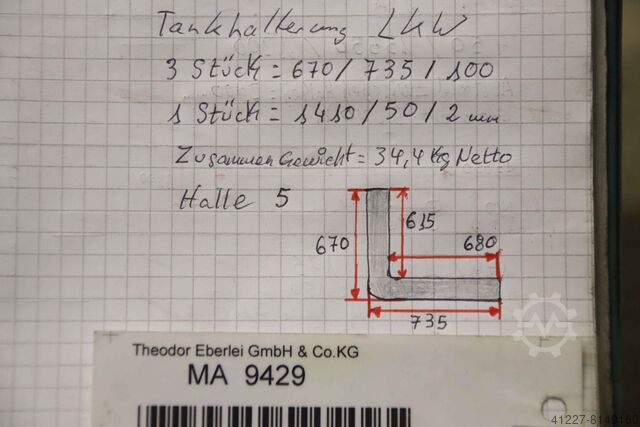 Tankhalterung LKW
3 Stück = 670 / 735 / 100
1 Stück = 1410 / 50 / 2 mm
Zusammen Gewicht = 34,4 Kg Netto
Halle 5
670
615
680
735
Theodor Eberlei GmbH & Co.KG
MA 9429
41227-8149160